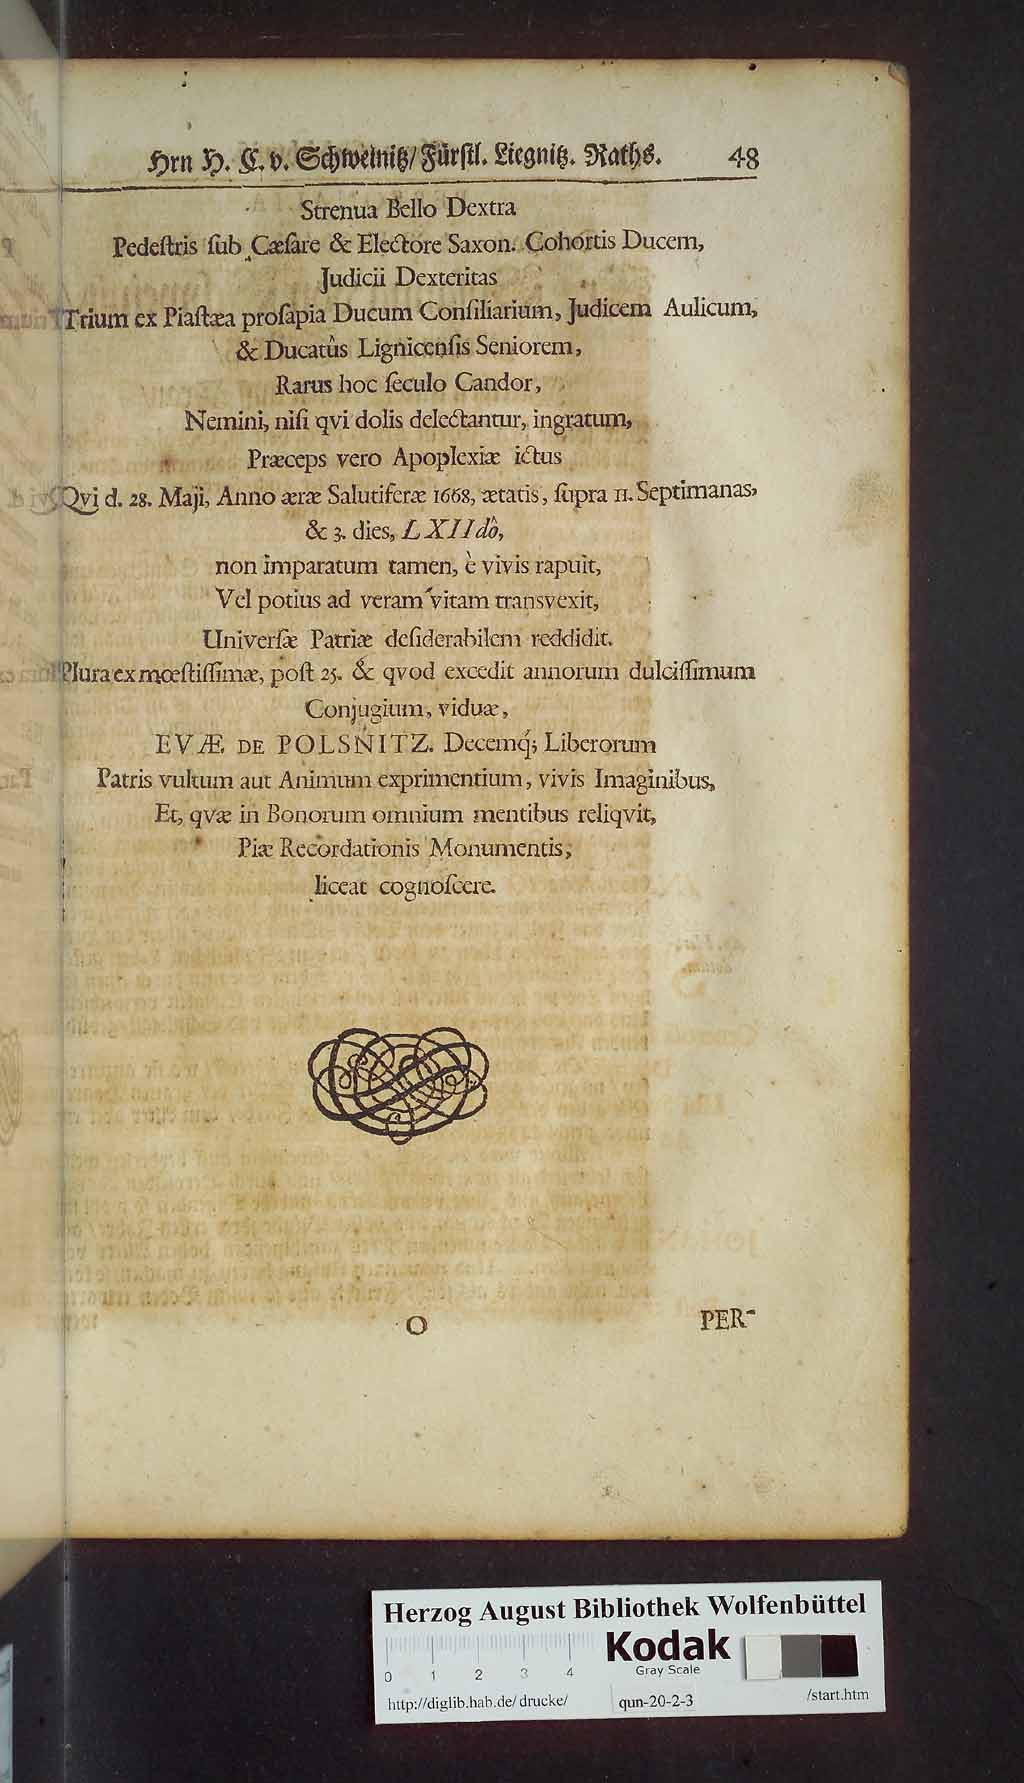 Hrn H. C. v. Schweinitz/ Fürstl. Liegnitz. Raths. 48
Strenua Bello Dextra
Pedeſtris ſub Cæſare & Electore Saxon. Cohortis Ducem,
Judicii Dexteritas
Trium ex Piaſtæa proſapia Ducum Conſiliarium, Judicem Aulicum,
& Ducatûs Lignicenſis Seniorem,
Rarus hoc ſeculo Candor,
Nemini, niſi qvi dolis delectantur, ingratum,
Præceps vero Apoplexiæ ictus
Qvi d. 28. Maji, Anno æræ Salutiferæ 1668, ætatis, ſupra 11. Septimanas,
& 3. dies, LXIIdô,
non imparatum tamen, è vivis rapuit,
Vel potius ad veram vitam transvexit,
Univerſæ Patriæ deſiderabilem reddidit.
Plura ex mœſtiſſimæ, poſt 25. & qvod excedit annorum dulciſſimum
Conjugium, viduæ,
EVÆ DE POLSNITZ. Decemq́; Liberorum
Patris vultum aut Animum exprimentium, vivis Imaginibus,
Et, qvæ in Bonorum omnium mentibus reliqvit,
Piæ Recordationis Monumentis,
liceat cognoſcere.
O PER-
Herzog August Bibliothek Wolfenbüttel
Kodak
Gray Scale
0 1 2 3 4
http://diglib.hab.de/drucke/ qun-20-2-3 /start.htm